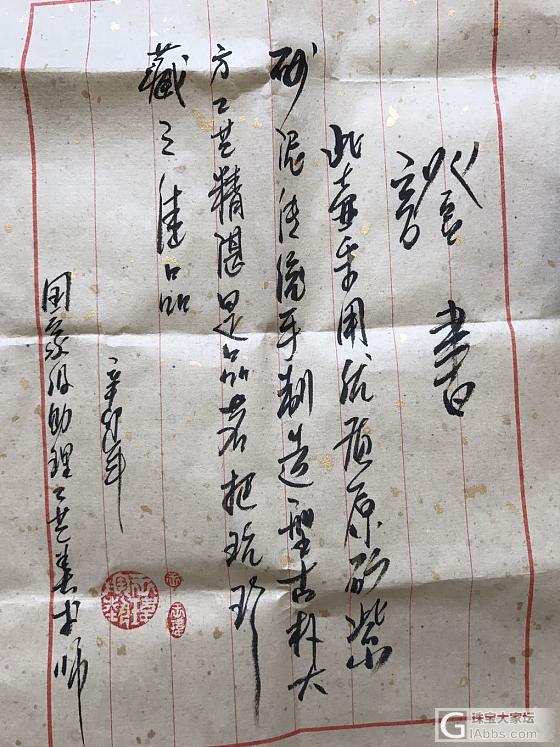 證書
此壶采用优质原矿紫
砂泥传统手制造型古朴大
方工艺精湛是品茗把玩珍
藏之佳品
辛卯年
国家级助理工艺美术师
珠宝大家坛
GIabbs.com